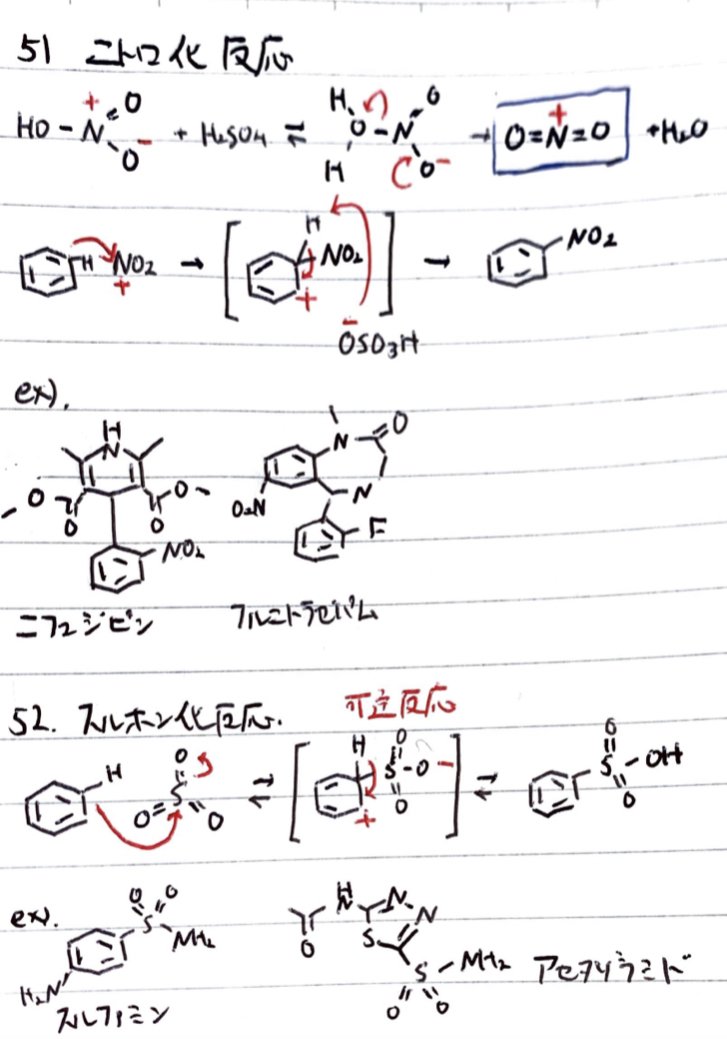 51 ニトロ化反応
HO-N+(=O)O- + H2SO4 ⇌ H O-N O O- H → O=N+=O + H2O
H NO2 + → [ H NO2 + ] → NO2
-OSO3H
ex).
H N O O O O NO2 N O N O2N F
ニフェジピン フルニトラゼパム
52. スルホン化反応. 可逆反応
H O S O O ⇌ [ H O S-O- O + ] ⇌ O S-OH O
ex).
O O S NH2 H2N O H N N N S S NH2 O O
スルファミン アセタゾラミド